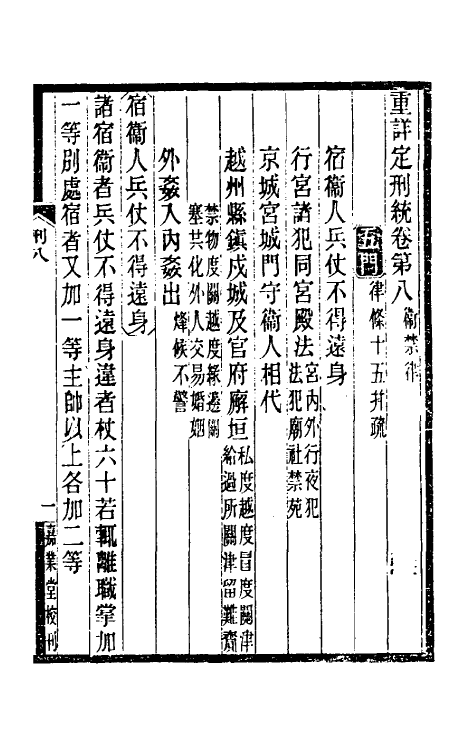 重詳定刑統卷第八 衞禁律
五門 律條十五并疏
宿衞人兵仗不得遠身
行宮諸犯同宮殿法 宮內外行夜犯法犯廟社禁苑
京城宮城門守衞人相代
越州縣鎮戍城及官府廨垣 私度越度冒度關津給過所關津留難齎
禁物度關越度緣邊關塞共化外人交易婚姻
外姦入內姦出 烽候不警
宿衞人兵仗不得遠身
諸宿衞者兵仗不得遠身違者杖六十若輒離職掌加
一等別處宿者又加一等主帥以上各加二等
刑八
一
嘉業堂校刊